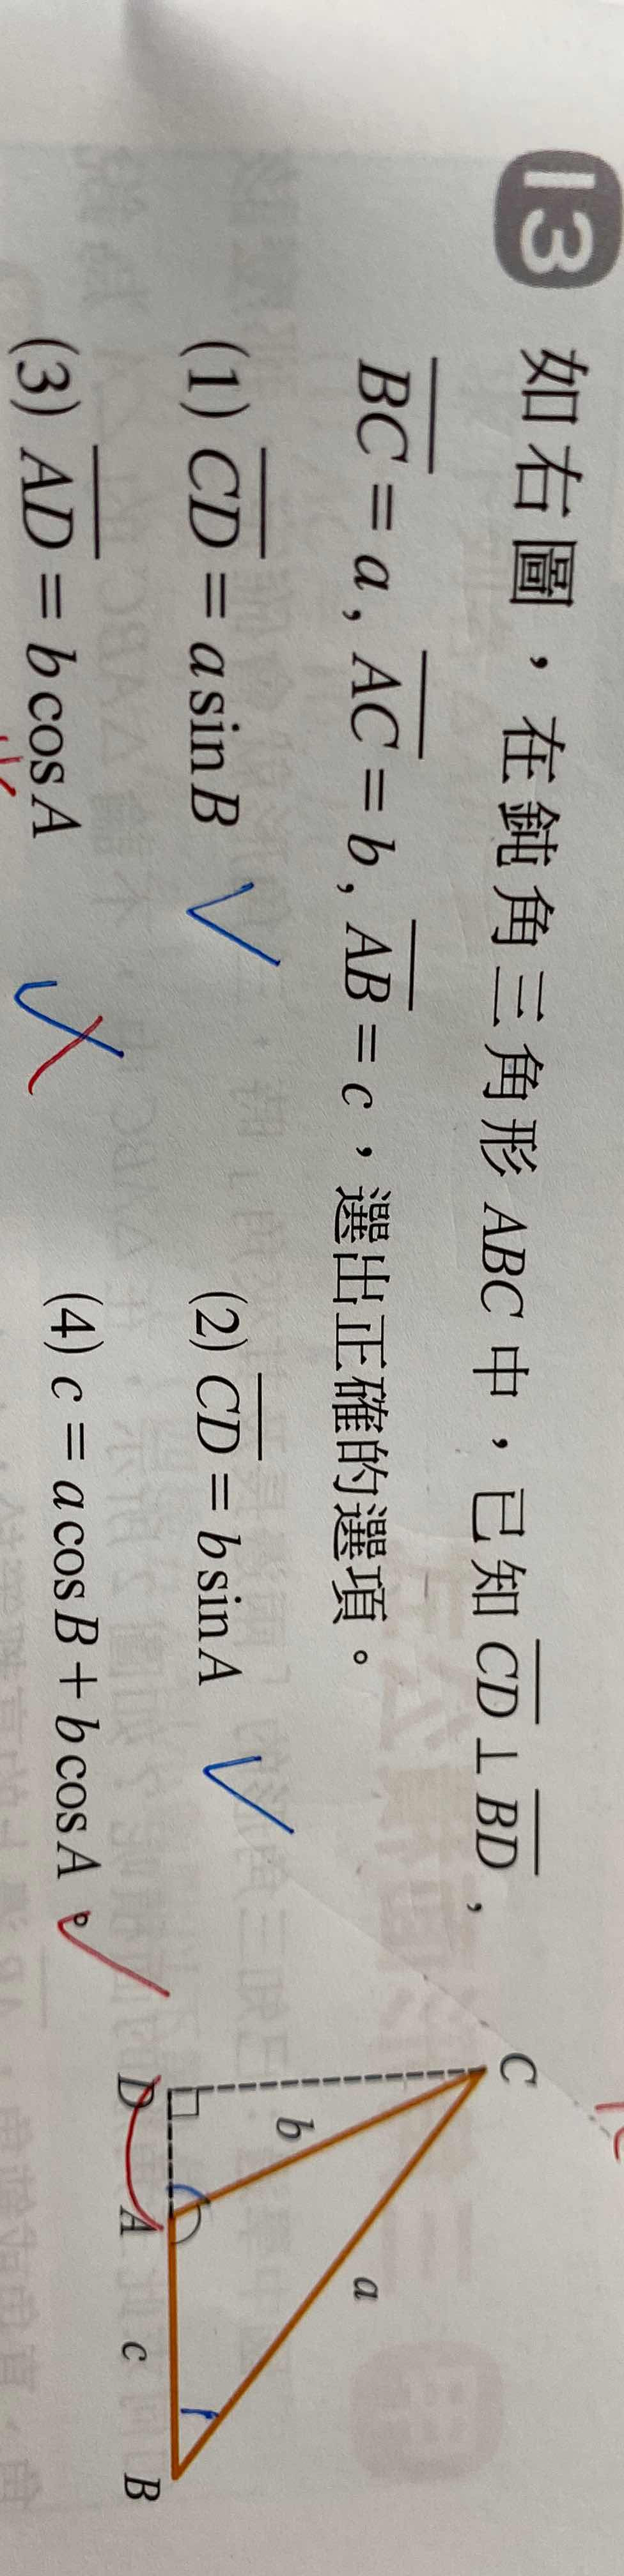 13 如右圖，在鈍角三角形 ABC 中，已知 \overline{CD}⊥\overline{BD}，
\overline{BC}=a，\overline{AC}=b，\overline{AB}=c，選出正確的選項。
(1) \overline{CD}=a sinB (2) \overline{CD}=b sinA
(3) \overline{AD}=b cosA (4) c=a cosB+b cosA。
C
b
a
D
A
c
B